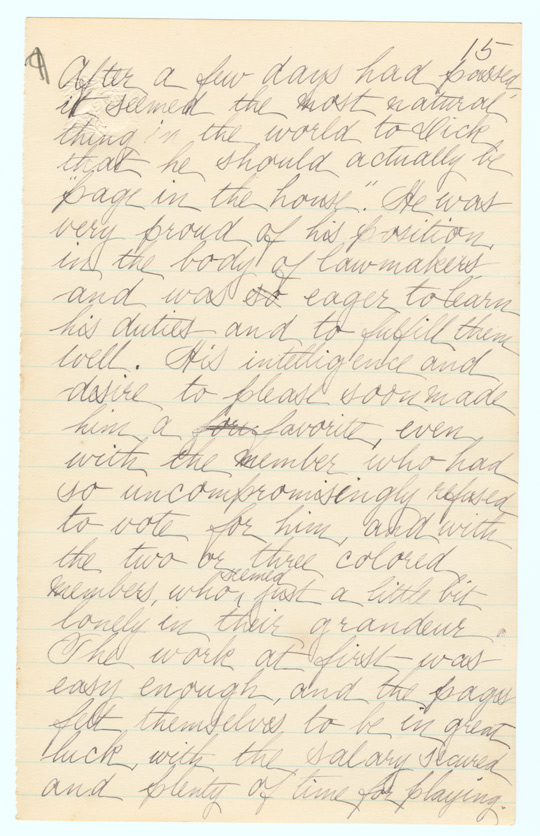 15
¶ After a few days had passed,
it seemed the most natural
thing in the world to Dick
that he should actually be
"page in the house". He was
very proud of his position,
in the body of lawmakers,
and was so eager to learn
his duties and to fulfill them
well. His intelligence and
desire to please soon made
him a fou favorite, even
with the member who had
so uncompromisingly refused
to vote for him, and with
the two or three colored
seemed
members, who, just a little bit
lonely in their grandeur.
The work at first was
easy enough, and the pages
felt themselves to be in great
luck, with the salary secured
and plenty of time for playing.